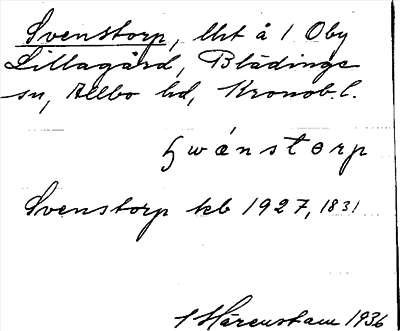 Svenstorp, lht å 1 Oby
Lillagård, Blädinge
sn, Allbo hd, Kronob. l.
svänstorp
Svenstorp kb 1927, 1831
Härenstam 1936